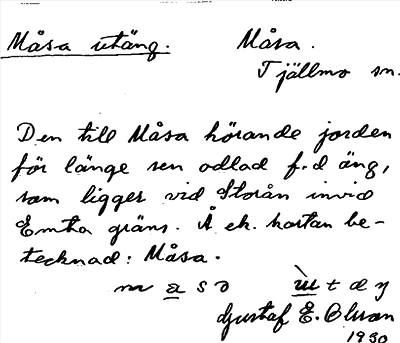 Måsa utäng.
Måsa.
Tjällmo sn.
Den till Måsa hörande jorden
för länge sen odlad f.d äng,
som ligger vid Storån invid
Emtha gräns. Å ek. kartan be-
tecknad: Måsa.
m a s ɔ ù t æ ŋ
Gustaf E. Olsson
1930